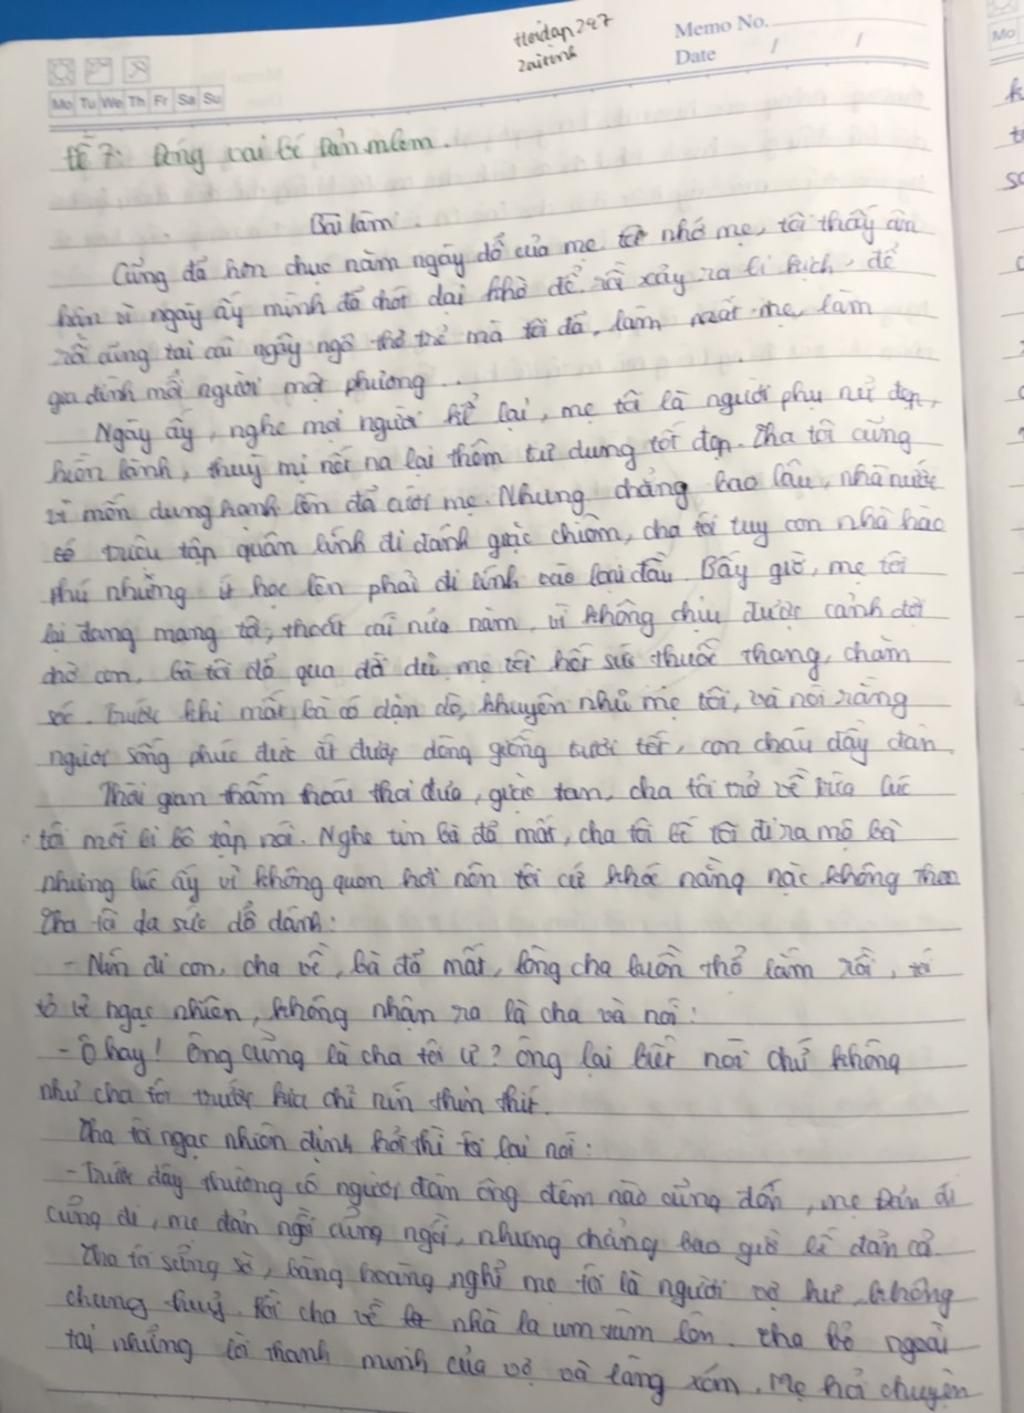 Hoidap247
zaitenh
Memo No.
Date / /
Mo Tu We Th Fr Sa Su
Mo
Đề 7: Đóng vai bé Đản mlem.
Bài làm.
Cũng đã hơn chục năm ngày dỗ của mẹ. nhớ mẹ, tôi thấy ân
hận vì ngày ấy mình đã chót dại khờ để rồi xảy ra bi kịch. để
rồi cũng tại cái ngây ngô thơ trẻ mà tôi đã, làm mất mẹ, làm
gia đình mỗi người một phương...
Ngày ấy, nghe mọi người kể lại, mẹ tôi là người phụ nữ đẹp,
hiền lành, thuỳ mị nết na lại thêm tư dung tốt đẹp. Cha tôi cũng
vì mến dung hạnh lên đã cưới mẹ. Nhưng chẳng bao lâu, nhà nước
có triệu tập quân lính đi đánh giặc chiêm, cha tôi tuy con nhà hào
phú nhưng ít học lên phải đi lính vào loại đầu. Bấy giờ, mẹ tôi
lại đang mang tôi, thoắt cái nửa năm, vì không chịu được cảnh đợi
chờ con, bà tôi đổ qua đời dù mẹ tôi hết sức thuốc thang, chăm
sóc. Trước khi mất, bà có dặn dò, khuyên nhủ mẹ tôi, và nói rằng
người sống phúc đức ắt được dòng giống tươi tốt, con cháu đầy đàn.
Thời gian thấm thoát thoi đưa, giặc tan, cha tôi trở về vừa lúc
tôi mới bi bô tập nói. Nghe tin bà đã mất, cha tôi bế tôi đi ra mộ bà
nhưng lúc ấy vì không quen hơi nên tôi cứ khóc nằng nặc không theo
Cha tôi ra sức dỗ dành:
- Nín đi con, cha về, bà đã mất, lòng cha buồn khổ lắm rồi, tôi
tỏ vẻ ngạc nhiên, không nhận ra là cha và nói:
- Ô hay! Ông cũng là cha tôi ư? ông lại biết nói chứ không
như cha tôi trước kia chỉ nín thin thít.
Cha tôi ngạc nhiên định hỏi thì tôi lại nói:
- Trước đây thường có người đàn ông đêm nào cũng đến, mẹ Đản đi
cũng đi, mẹ đản ngồi cũng ngồi, nhưng chẳng bao giờ bế đản cả.
Cha tôi sững sờ, bàng hoàng nghĩ mẹ tôi là người vợ hư, không
chung thuỷ. Rồi cha về nhà la um xùm lên. cha bỏ ngoài
tai những lời thanh minh của vợ và làng xóm. Mẹ hỏi chuyện